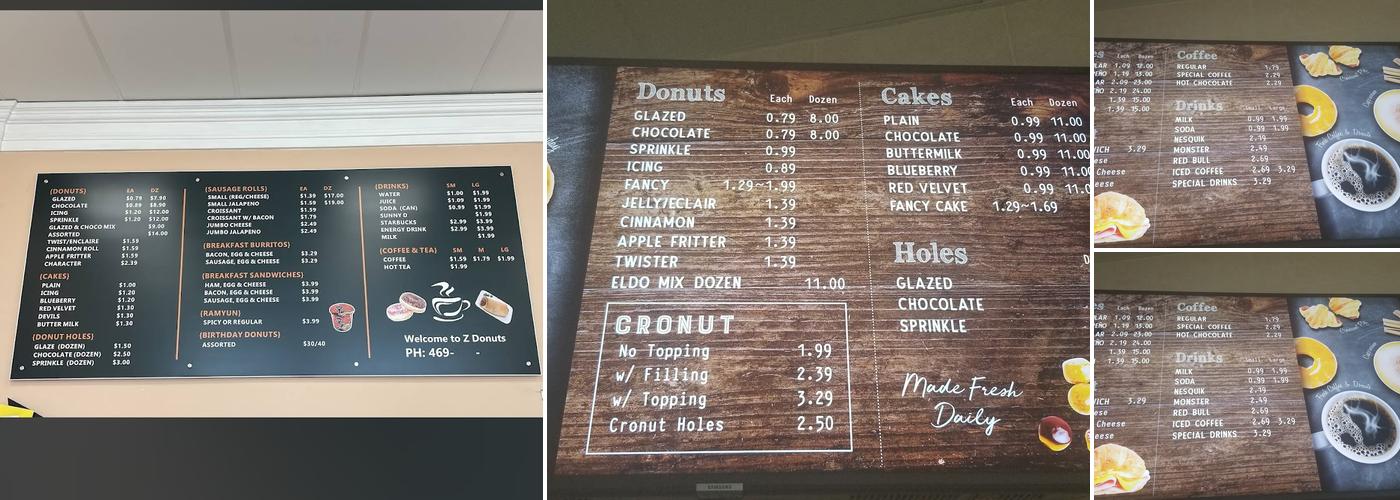 (DONUTS) EA DZ
GLAZED $0.79 $7.90
CHOCOLATE $0.89 $8.90
ICING $1.20 $12.00
SPRINKLE $1.20 $12.00
GLAZED & CHOCO MIX $9.00
ASSORTED $14.00
TWIST/ENCLAIRE $1.59
CINNAMON ROLL $1.59
APPLE FRITTER $1.59
CHARACTER $2.39
(CAKES)
PLAIN $1.00
ICING $1.20
BLUEBERRY $1.20
RED VELVET $1.30
DEVILS $1.30
BUTTER MILK $1.30
(DONUT HOLES)
GLAZE (DOZEN) $1.50
CHOCOLATE (DOZEN) $2.50
SPRINKLE (DOZEN) $3.00
(SAUSAGE ROLLS) EA DZ
SMALL (REG/CHEESE) $1.39 $17.00
SMALL JALAPENO $1.59 $19.00
CROISSANT $1.59
CROISSANT W/ BACON $1.79
JUMBO CHEESE $2.49
JUMBO JALAPENO $2.49
(BREAKFAST BURRITOS)
BACON, EGG & CHEESE $3.29
SAUSAGE, EGG & CHEESE $3.29
(BREAKFAST SANDWICHES)
HAM, EGG & CHEESE $3.99
BACON, EGG & CHEESE $3.99
SAUSAGE, EGG & CHEESE $3.99
(RAMYUN)
SPICY OR REGULAR $3.99
(BIRTHDAY DONUTS)
ASSORTED $30/40
(DRINKS) SM LG
WATER $1.00 $1.99
JUICE $1.09 $1.99
SODA (CAN) $0.99 $1.99
SUNNY D $1.99
STARBUCKS $2.99 $3.99
ENERGY DRINK $2.99 $3.99
MILK $1.99
(COFFEE & TEA) SM M LG
COFFEE $1.59 $1.79 $1.99
HOT TEA $1.99
Welcome to Z Donuts
PH: 469- -
Donuts Each Dozen
GLAZED 0.79 8.00
CHOCOLATE 0.79 8.00
SPRINKLE 0.99
ICING 0.89
FANCY 1.29~1.99
JELLY/ECLAIR 1.39
CINNAMON 1.39
APPLE FRITTER 1.39
TWISTER 1.39
ELDO MIX DOZEN 11.00
CRONUT
No Topping 1.99
w/ Filling 2.39
w/ Topping 3.29
Cronut Holes 2.50
Cakes Each Dozen
PLAIN 0.99 11.00
CHOCOLATE 0.99 11.00
BUTTERMILK 0.99 11.00
BLUEBERRY 0.99 11.00
RED VELVET 0.99 11.0
FANCY CAKE 1.29~1.69
Holes
GLAZED
CHOCOLATE
SPRINKLE
Made Fresh
Daily
SAMSUNG
Each Dozen
LAR 1.09 12.00
EÑO 1.19 13.00
LAR 2.09 23.00
EÑO 2.19 24.00
1.39 15.00
1.39 15.00
WICH 3.29
eese
Cheese
eese
Coffee
REGULAR 1.79
SPECIAL COFFEE 2.29
HOT CHOCOLATE 2.29
Drinks Small Large
MILK 0.99 1.99
SODA 0.99 1.99
NESQUIK 2.19
MONSTER 2.49
RED BULL 2.69
ICED COFFEE 2.69 3.29
SPECIAL DRINKS 3.29
Fresh Coffee & Donuts
Each Dozen
LAR 1.09 12.00
EÑO 1.19 13.00
LAR 2.09 23.00
EÑO 2.19 24.00
1.39 15.00
1.39 15.00
WICH 3.29
eese
Cheese
eese
Coffee
REGULAR 1.79
SPECIAL COFFEE 2.29
HOT CHOCOLATE 2.29
Drinks Small Large
MILK 0.99 1.99
SODA 0.99 1.99
NESQUIK 2.19
MONSTER 2.49
RED BULL 2.69
ICED COFFEE 2.69 3.29
SPECIAL DRINKS 3.29
Fresh Coffee & Donuts